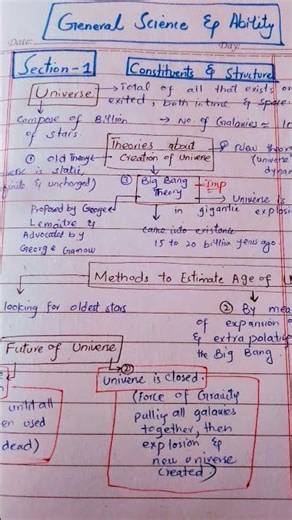 General Science & Ability
Date:
Day:
Section-1
Constituents & Structure
Universe
Total of all that exists or
exited, both in time & space
Compose of Billion
of stars.
No. of Galaxies ~
Theories about
Creation of Universe
① Old Theory
universe is static
& unchanged)
② New theor
(univers
dynam
③ Big Bang
Theory
Imp
Universe is
in gigantic explos
Proposed by George
Lemaitre &
Advocated by
George Gamow
came into existence
15 to 20 billion years ago
Methods to Estimate Age of
looking for oldest stars
② By mea
of expansion o
& extrapolatin
the Big Bang.
Future of Universe
②
Universe is closed.
(force of Gravity
pulling all galaxies
together, then
explosion &
new universe
created)
until all
en used
dead)